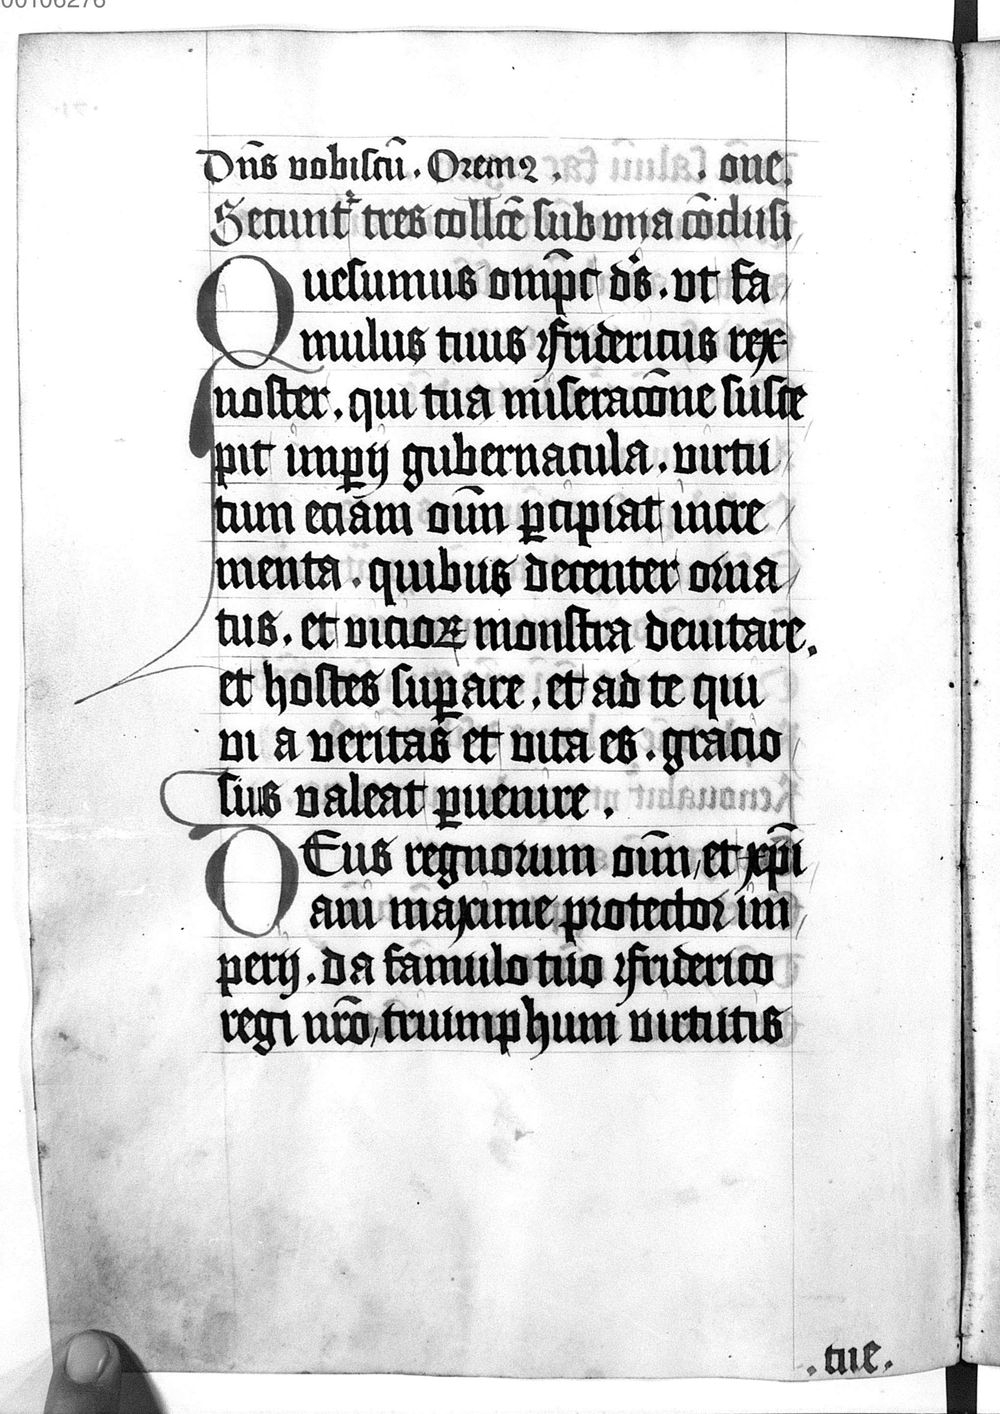 00106276
Dn̄s vobiscū . Oremꝰ . . one.
Secunt᷑ tres collc̄e sub vna cōclusi
Quesumus omp̄c ds̄ . vt fa
mulus tuus ffridericus rex
noster . qui tua miseracōne susce
pit imꝑij gubernacula . virtu
tum eciam oīm ꝑcipiat incre
menta . quibus decenter orna
tus . et vicioꝝ monstra deuitare .
et hostes suꝑare . et ad te qui
vi a veritas et vita es . gracio
sius valeat ꝑuenire .
DEus regnorum oīm, et xp̄i
ani maxime protector im
perij . da famulo tuo ffriderico
regi nr̄o, triumphum virtutis
. tue .